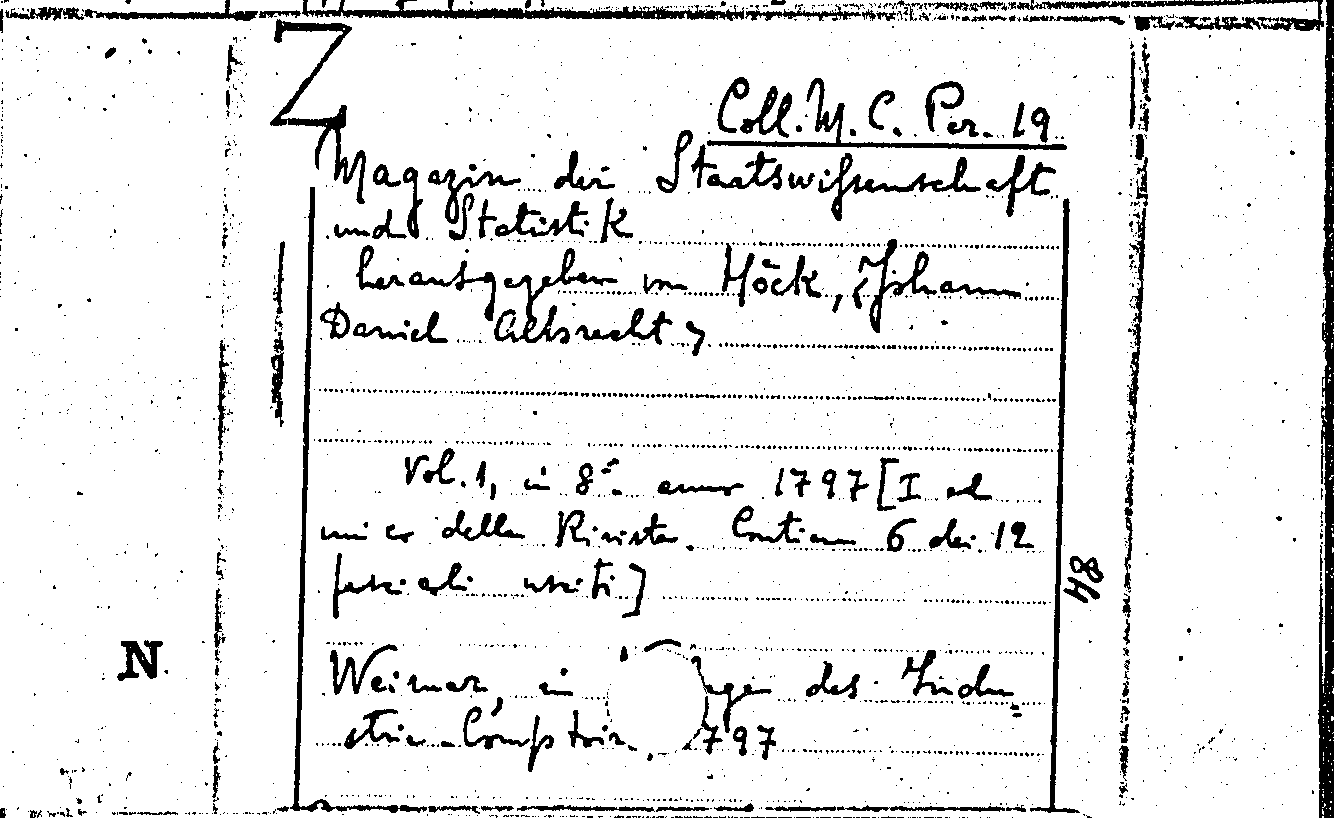 Z
Coll. M. C. Per. 19
Magazin der Staatswissenschaft
und Statistik
herausgegeben von Höck, <Johann
Daniel Albrecht>
Vol. 1, in 8º. anno 1797 [I ed
unico della Rivista. Contiene 6 dei 12
fascicoli usciti]
84
N
Weimar, in des Indu=
strie-Comptoirs. 797